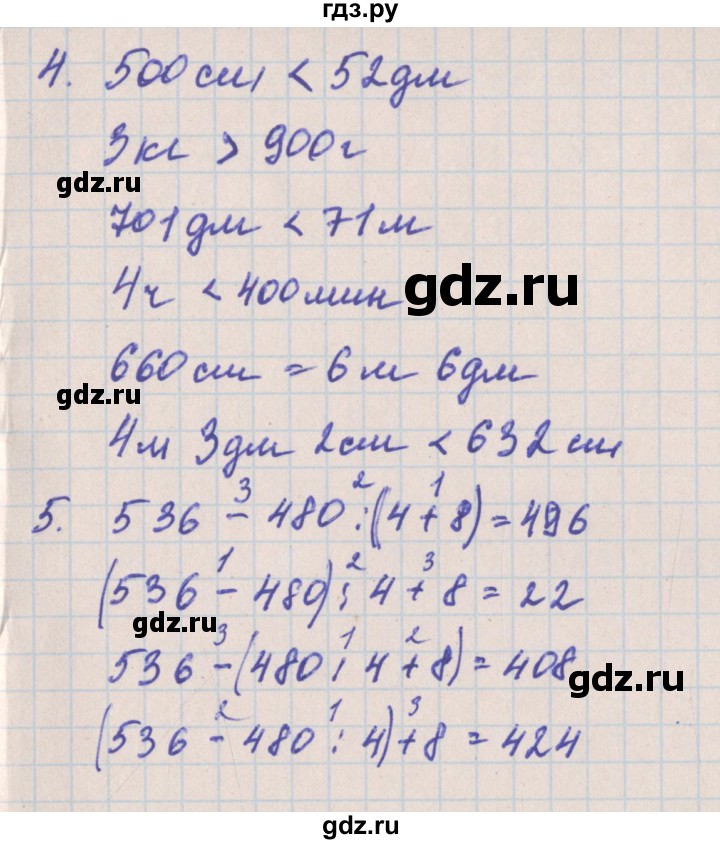 гдз.ру
4. 500 см < 52 дм
3 кг > 900 г
gdz.ru
701 дм < 71 м
4 ч < 400 мин
gdz.ru
660 см = 6 м 6 дм
gdz.ru
4 м 3 дм 2 см < 632 см
3 2 1
5. 536 - 480 : (4 + 8) = 496
1 2 3
(536 - 480) : 4 + 8 = 22
gdz.ru
3 1 2
536 - (480 : 4 + 8) = 408
gdz.ru
2 1 3
(536 - 480 : 4) + 8 = 424
gdz.ru